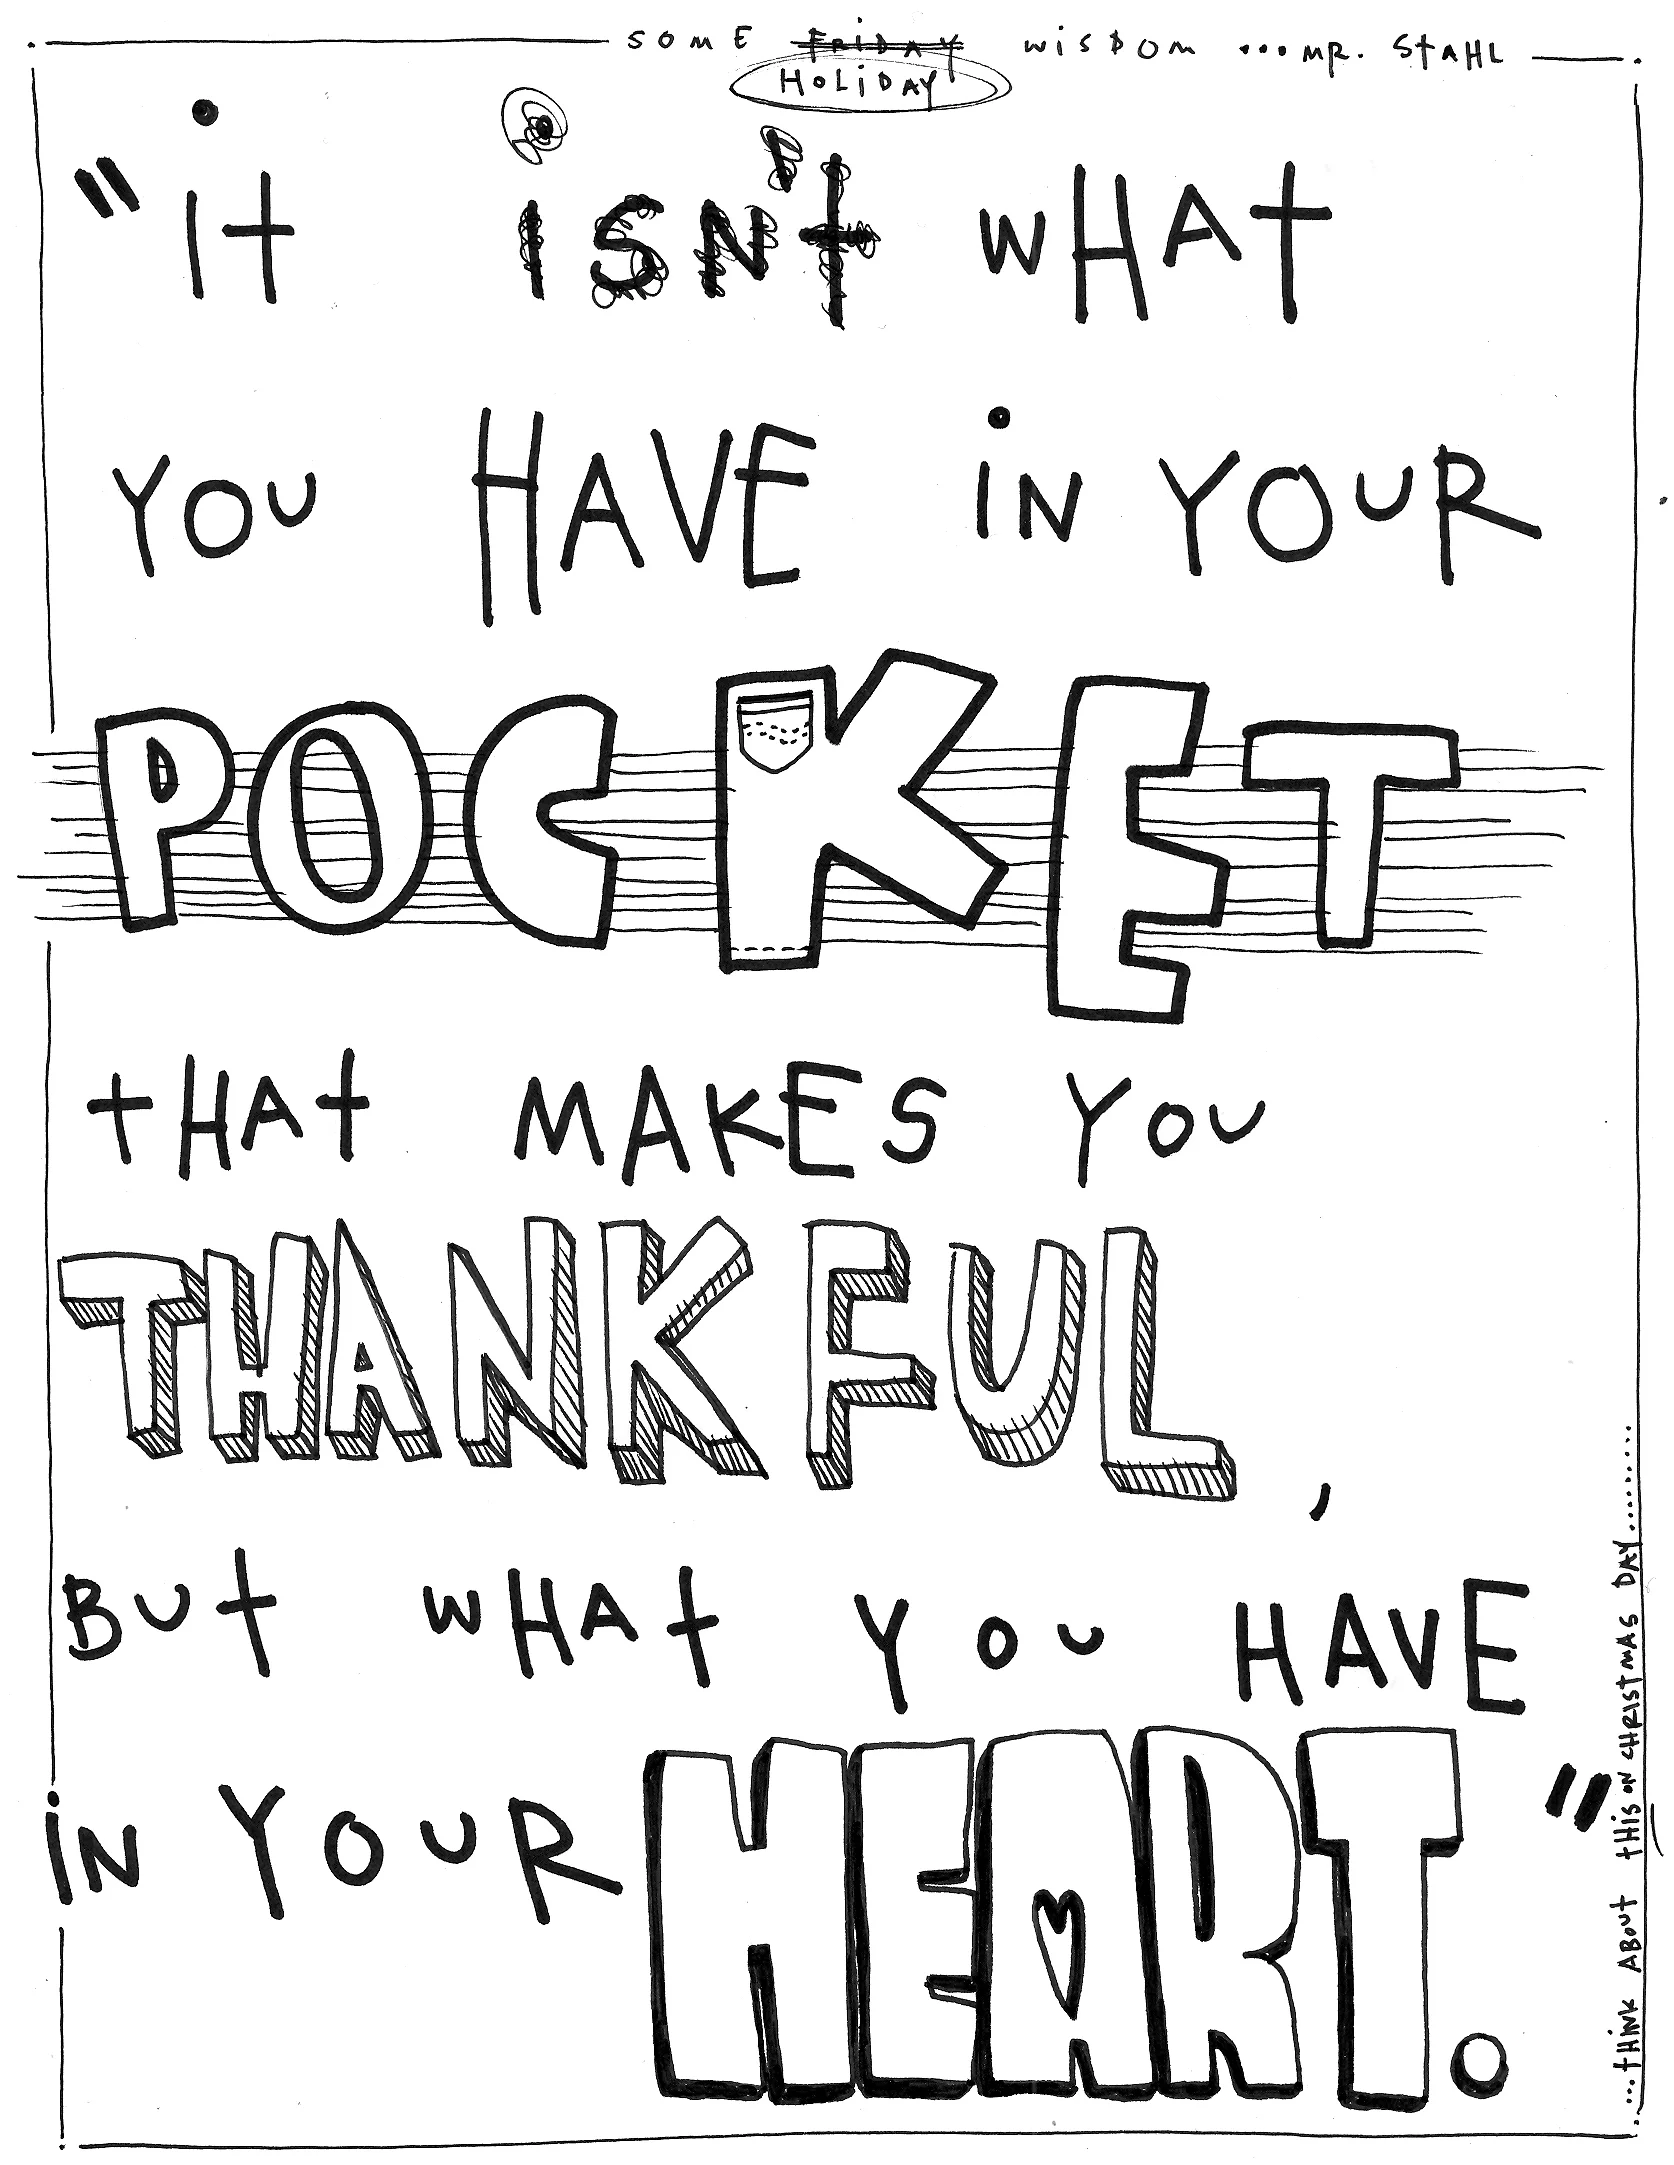 SOME FRiDAY WiSDOM ...MR. StAHL
HOLiDAY
"it iSN't WHAt
YOU HAVE iN YOUR
POCKET
tHAt MAKES YOU
THANKFUL,
BUt WHAt YOU HAVE
iN YOUR HEART."
...tHiNK ABOUt tHiS ON CHRISTMAS DAY........